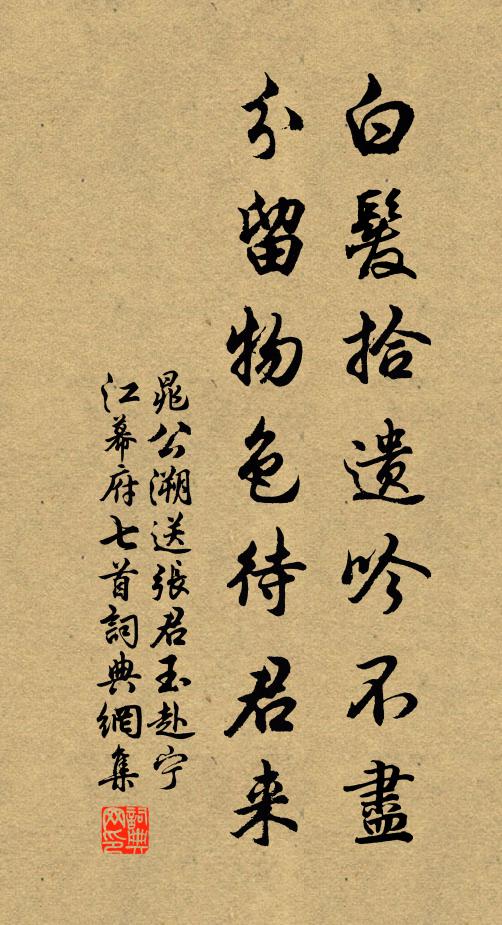 白髮拾遺吟不盡
分留物色待君来
晁公溯送張君玉赴宁
江幕府七首詞典網集
詞典网印